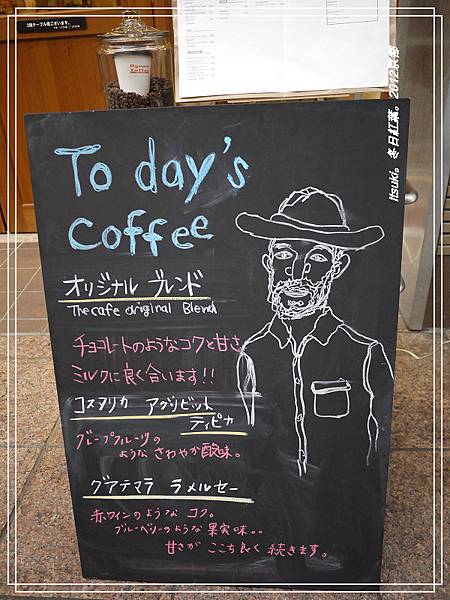 2階テーブル席ございます。
To day's
coffee
オリジナル ブレンド
The cafe original Blend
チョコレートのようなコクと甘さ
ミルクに良く合います!!
コスタリカ アグリビット
ティピカ
グレープフルーツの
ような さわやか酸味。
グアテマラ ラメルセー
赤ワインのような コク。
ブルーベリーのような果実味。。
甘さが ここち良く 続きます。
Itsuki。冬日紅葉。2012京都